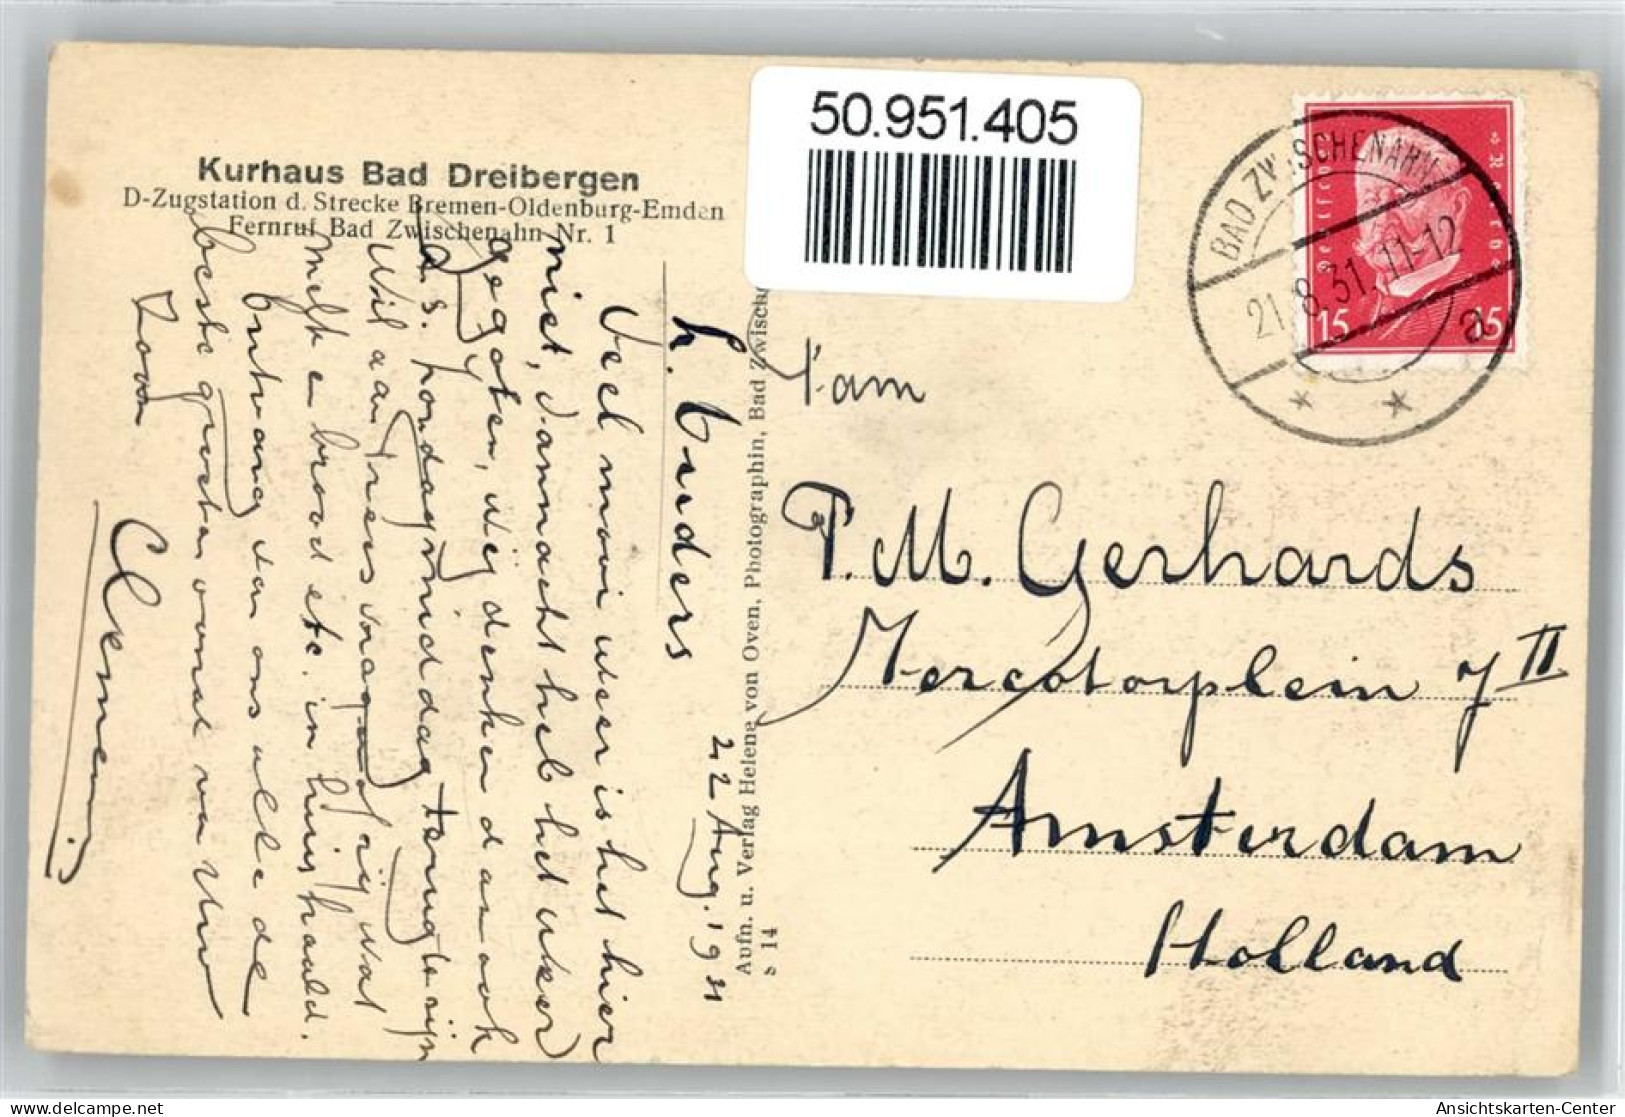 50.951.405
Kurhaus Bad Dreibergen
D-Zugstation d. Strecke Bremen-Oldenburg-Emden
Fernruf Bad Zwischenahn Nr. 1
BAD ZWISCHENAHN
21.8.31. 11-12
a
Deutsches Reich
15 15
Fam
P.M. Gerhards
Mercatorplein 7 II
Amsterdam
Holland
Aufn. u. Verlag Helene von Oven, Photographin, Bad Zwische
s 14
22 Aug. 1931
L. Ouders
Veel mooi weer is het hier
niet, vannacht heb het weer
gegoten, wij denken dan ook
a.s. Zondagmiddag terug te rijn
Wil aan Triens vragen of zij wat
melk en brood etc. in huis haald.
Ontvang van ons alle de
beste groeten vooral van Uw
Zoon
Clemens
Ansichtskarten-Center